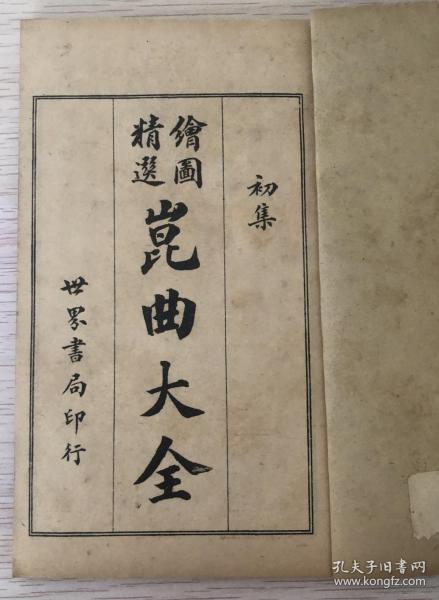 初集
繪圖
精選
崑曲大全
世界書局印行
孔夫子旧书网
www.kongfz.com